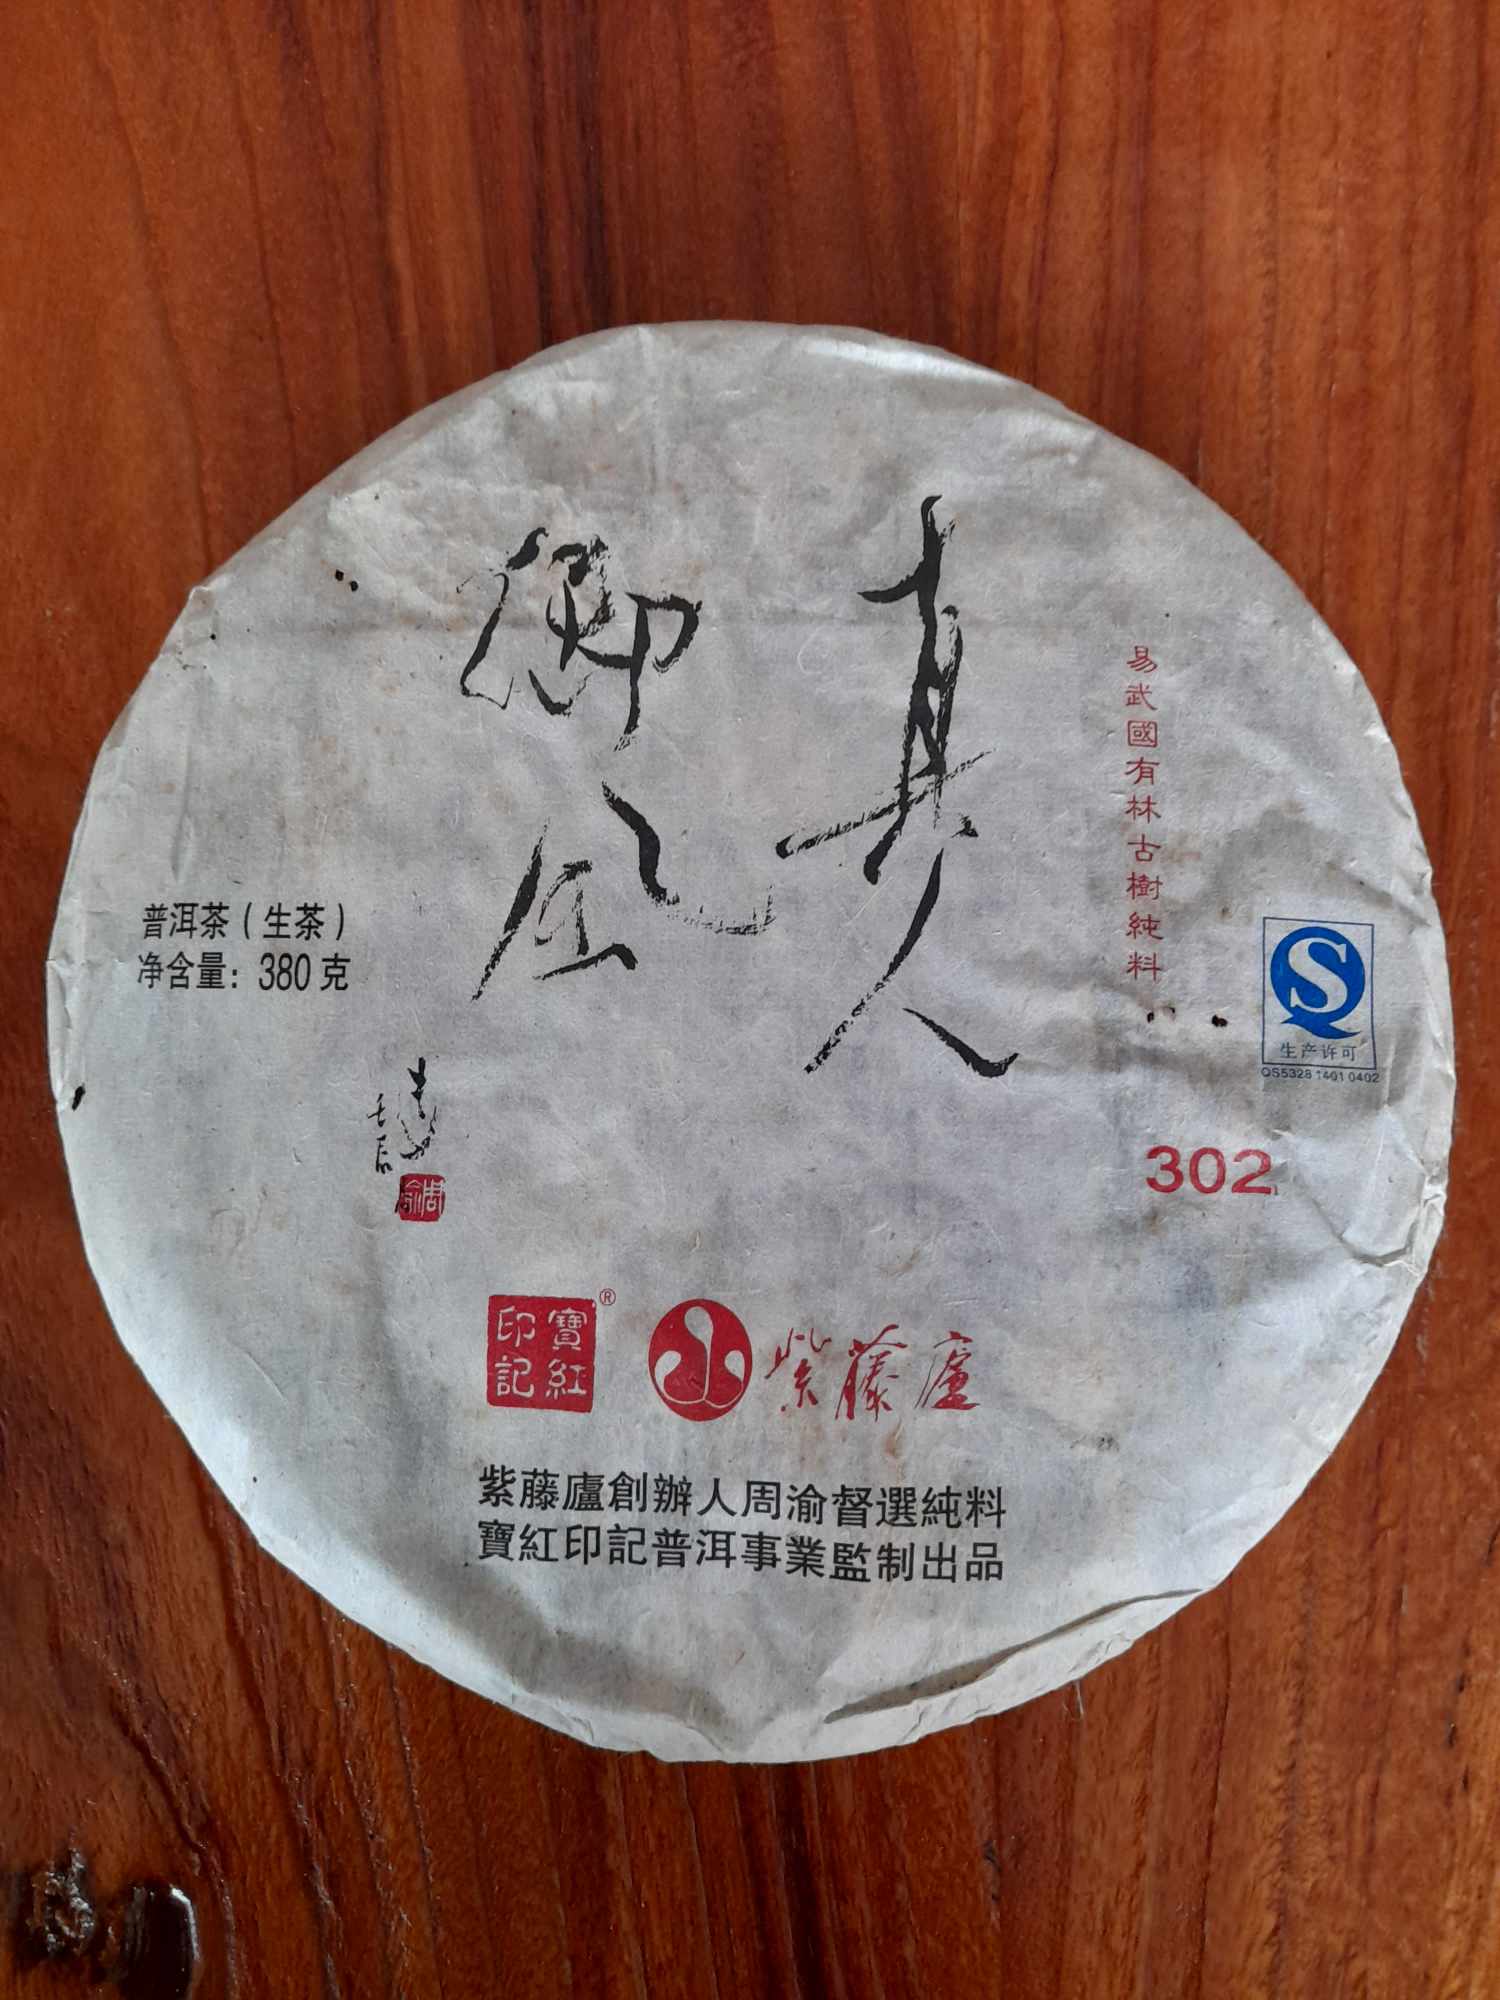 真人
御風
易武國有林古樹純料
普洱茶（生茶）
净含量：380克
壬辰
周渝
生产许可
QS5328 1401 0402
302
寶紅印記®
紫藤廬
紫藤廬創辦人周渝督選純料
寶紅印記普洱事業監制出品